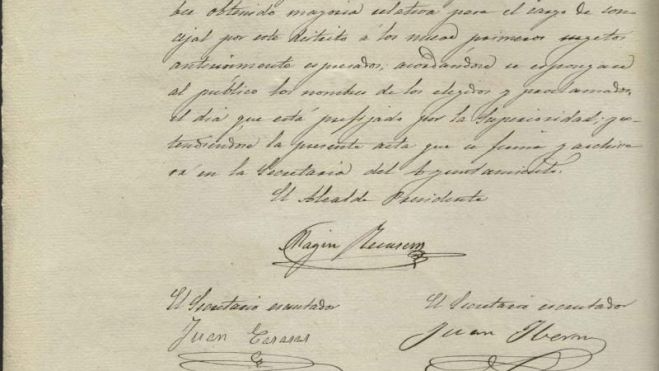 ber obtenido mayoria relativa para el cargo de con-
cejal por este distrito á los nueve primeros sugetos
anteriormente espresados; acordándose se espongan
al público los nombres de los elegidos y proclamados,
el dia que está prefijado por la Superioridad; es-
tendiéndose la presente acta que se firma y archiva-
rá en la Secretaria del Ayuntamiento.
El Alcalde Presidente
Magin Recasens
El Secretario escrutador
El Secretario escrutador
Juan
Juan